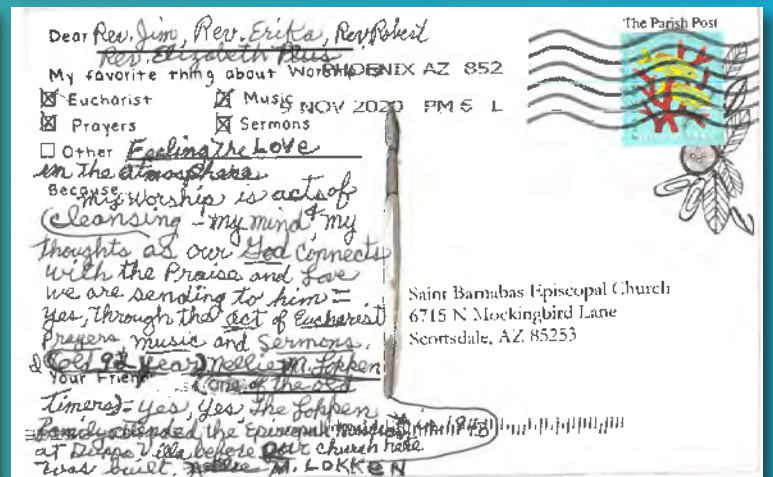 The Parish Post
Dear Rev. Jim, Rev. Erika, Rev Robert
Rev. Elizabeth Plus
My favorite thing about Worship is
PHOENIX AZ 852
5 NOV 2020 PM 6 L
☒ Eucharist ☒ Music
☒ Prayers ☒ Sermons
☐ Other Feeling The Love
in The atmosphere
Because my Worship is acts of
Cleansing - my mind & my
Thoughts as our God connects
with the Praise and Love
we are sending to him =
yes, through the act of Eucharist
Prayers, music and Sermons.
(old 92 year) Nellie M. Lokken
Your Friend (one of the old
timers) = yes, yes The Lokken
Family attended the Episcopal
at before our church here
was built. Nellie M. LOKKEN
Saint Barnabas Episcopal Church
6715 N Mockingbird Lane
Scottsdale, AZ 85253